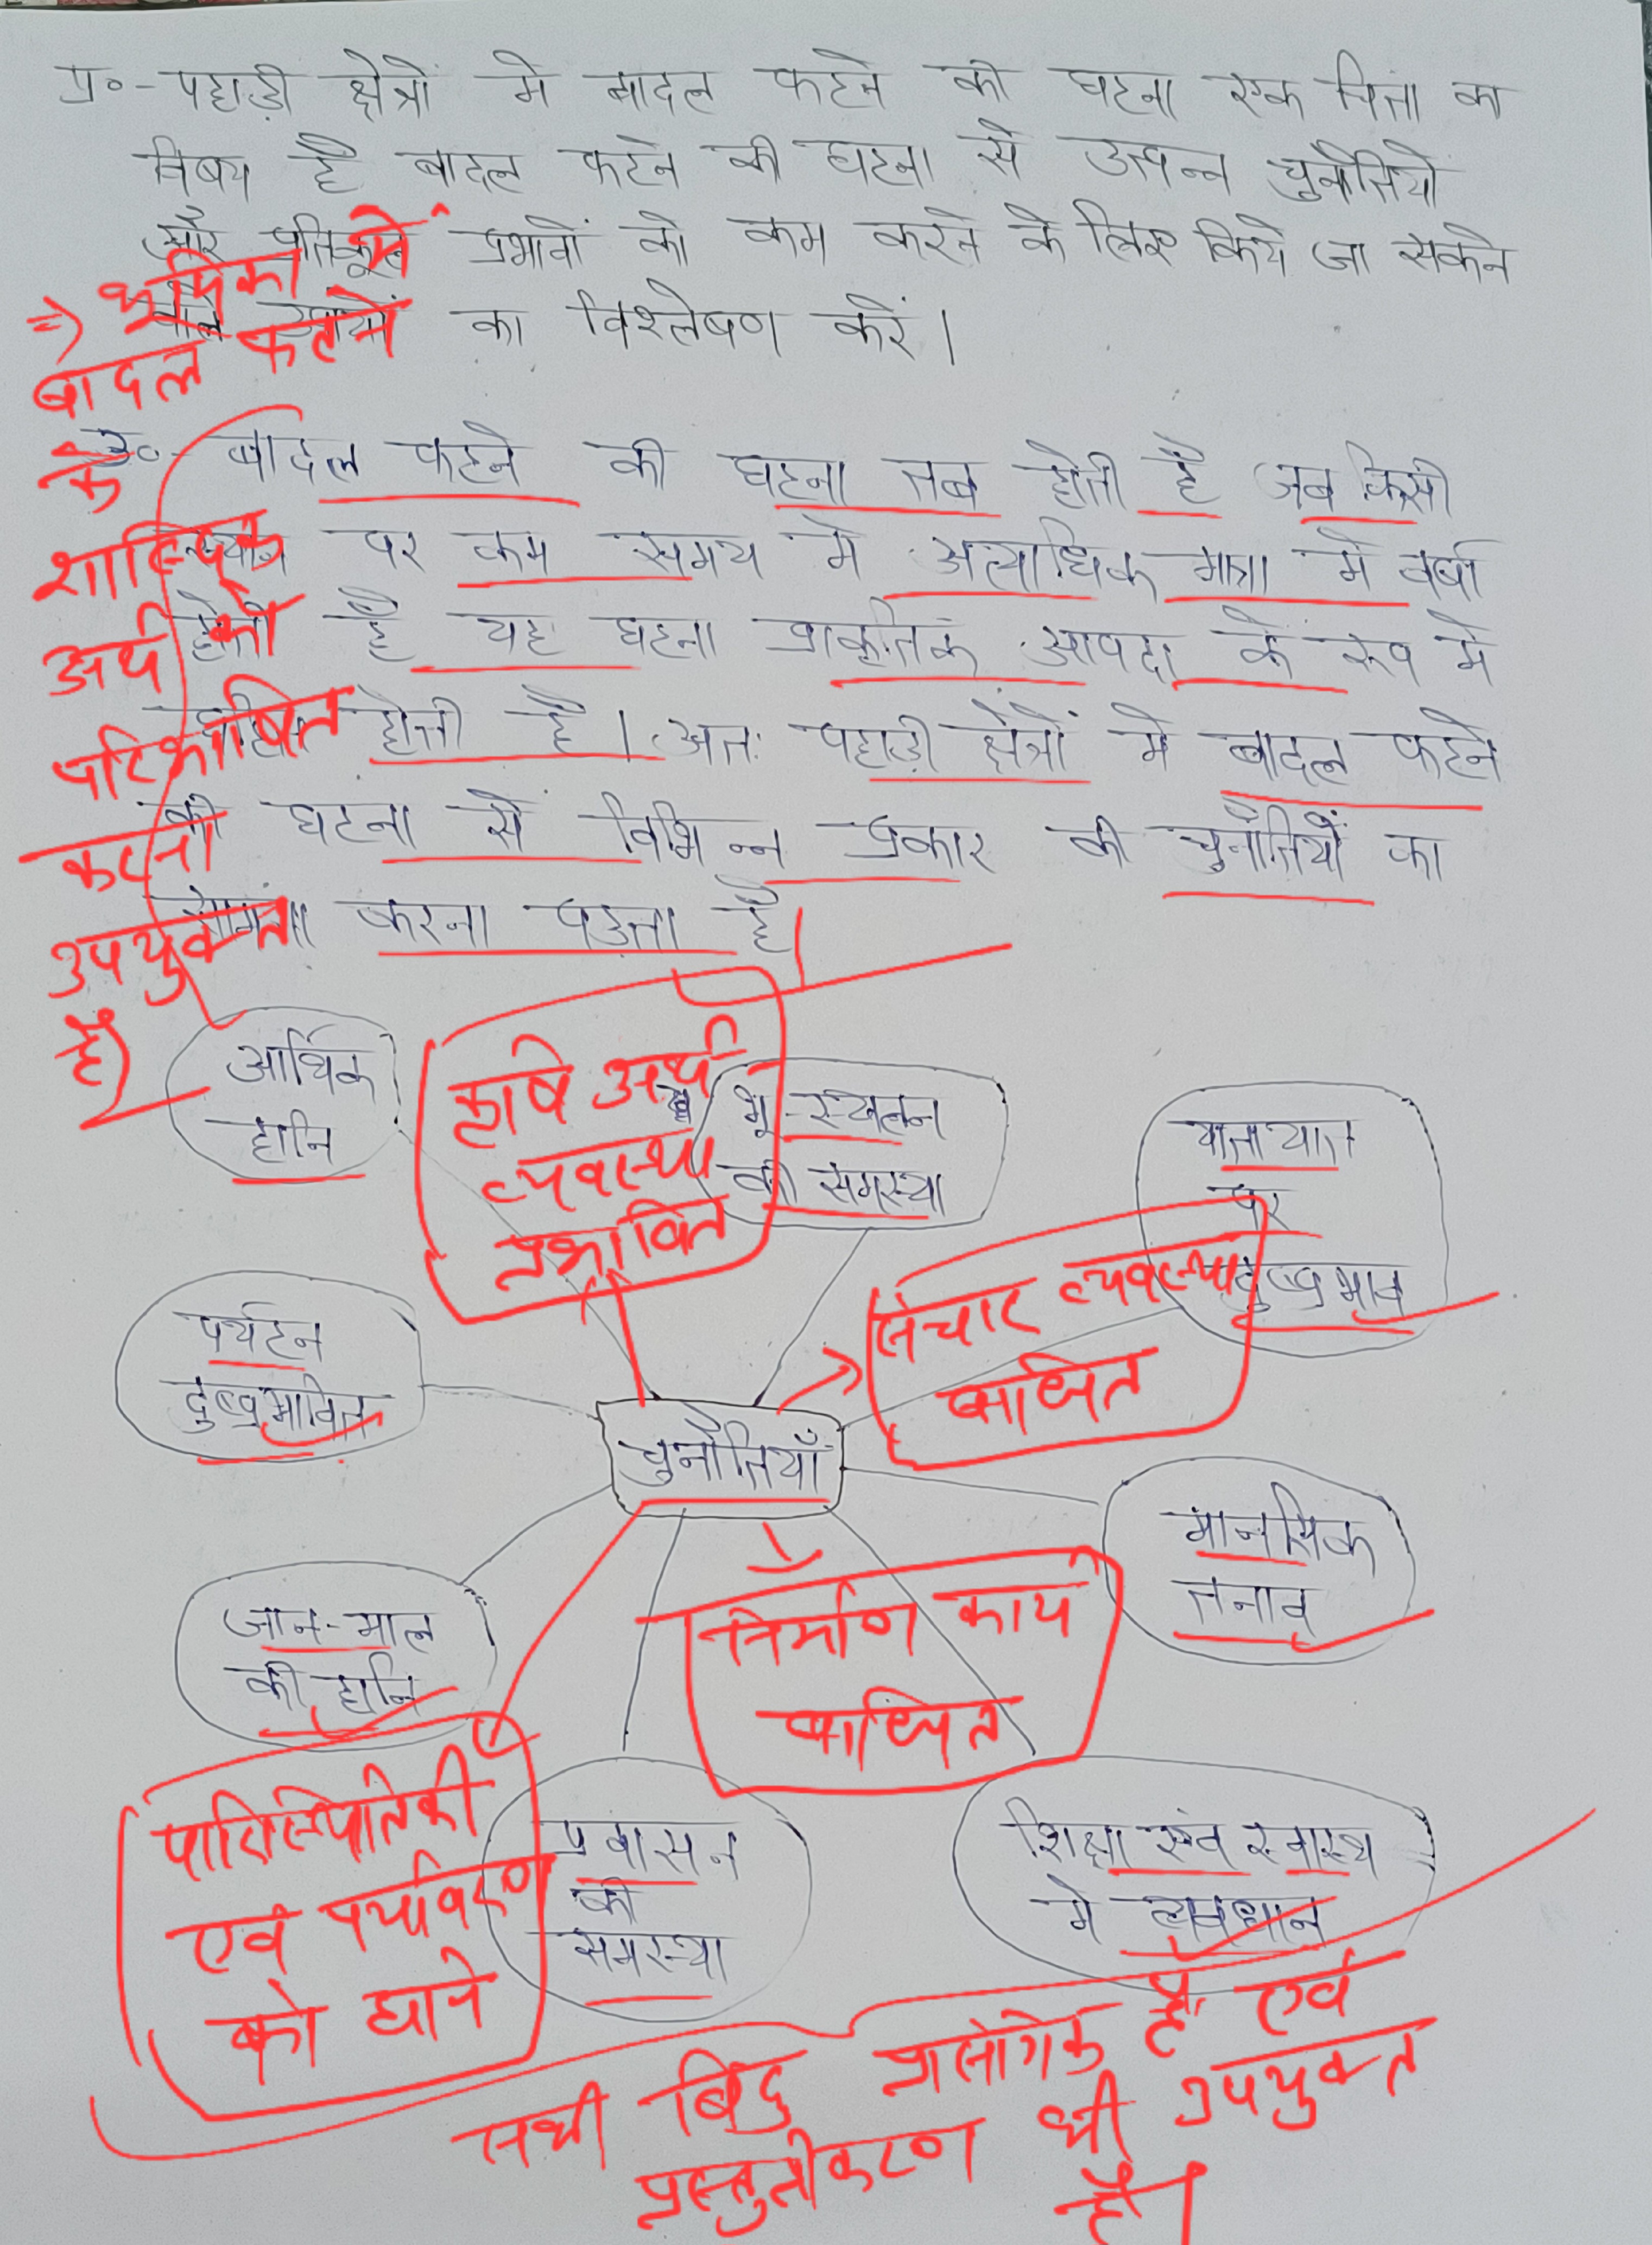 प्र०- पहाड़ी क्षेत्रों में बादल फटने की घटना एक चिंता का
विषय है बादल फटने की घटना से उत्पन्न चुनौतियों
और प्रतिकूल प्रभावों को कम करने के लिए किये जा सकने
वाले उपायों का विश्लेषण करें।
=> भूमिका में
बादल फटने
के
शाब्दिक
अर्थ को
परिभाषित
करना
उपयुक्त
है)
उ०- बादल फटने की घटना तब होती है जब किसी
स्थान पर कम समय में अत्याधिक मात्रा में वर्षा
होती है यह घटना प्राकृतिक आपदा के रूप में
घटित होती है। अतः पहाड़ी क्षेत्रों में बादल फटने
की घटना से विभिन्न प्रकार की चुनौतियों का
सामना करना पड़ता है।
आर्थिक
हानि
कृषि अर्थ
व्यवस्था
प्रभावित
भू-स्खलन
की समस्या
यातायात
पर
दुष्प्रभाव
संचार व्यवस्था
बाधित
पर्यटन
दुष्प्रभावित
चुनौतियाँ
मानसिक
तनाव
जान-माल
की हानि
निर्माण कार्य
बाधित
पारिस्थितिकी
एवं पर्यावरण
को हानि
प्रवासन
की
समस्या
शिक्षा एंव स्वास्थ
में व्यवधान
सभी बिंदु प्रासंगिक हैं, एवं
प्रस्तुतीकरण भी उपयुक्त
है।